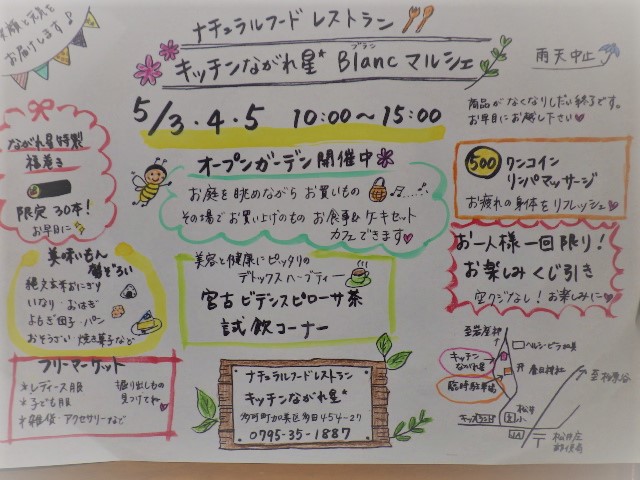 笑顔と元気を
お届けします♪
ナチュラルフードレストラン
キッチンながれ星* Blancマルシェ
ブラン
雨天中止
5/3・4・5 10:00〜15:00
商品がなくなりしだい終了です。
お早目にお越し下さい♥
ながれ星特製
福巻き
限定30本!
お早目に
オープンガーデン開催中
お庭を眺めながらお買いもの
その場でお買い上げのもの お食事&ケーキセット
カフェできます♥
500
ワンコイン
リンパマッサージ
お疲れの身体をリフレッシュ♥
美味いもん
勢ぞろい
いなり・おはぎ
よもぎ団子・パン
おそうざい・焼き菓子など
美容と健康にピッタリの
デトックスハーブティー
宮古ビデンスピローサ茶
試飲コーナー
お一人様一回限り!
お楽しみくじ引き
空クジなし!お楽しみに♥
フリーマーケット
*レディース服
*子ども服
*雑貨・アクセサリーなど
掘り出しもの
見つけてね♥
ナチュラルフードレストラン
キッチンながれ星*
多可町加美区多田454-27
0795-35-1887
至岩座神
キッチン
ながれ星
臨時駐車場
春日神社
松井
JA
〒
松井庄
郵便局